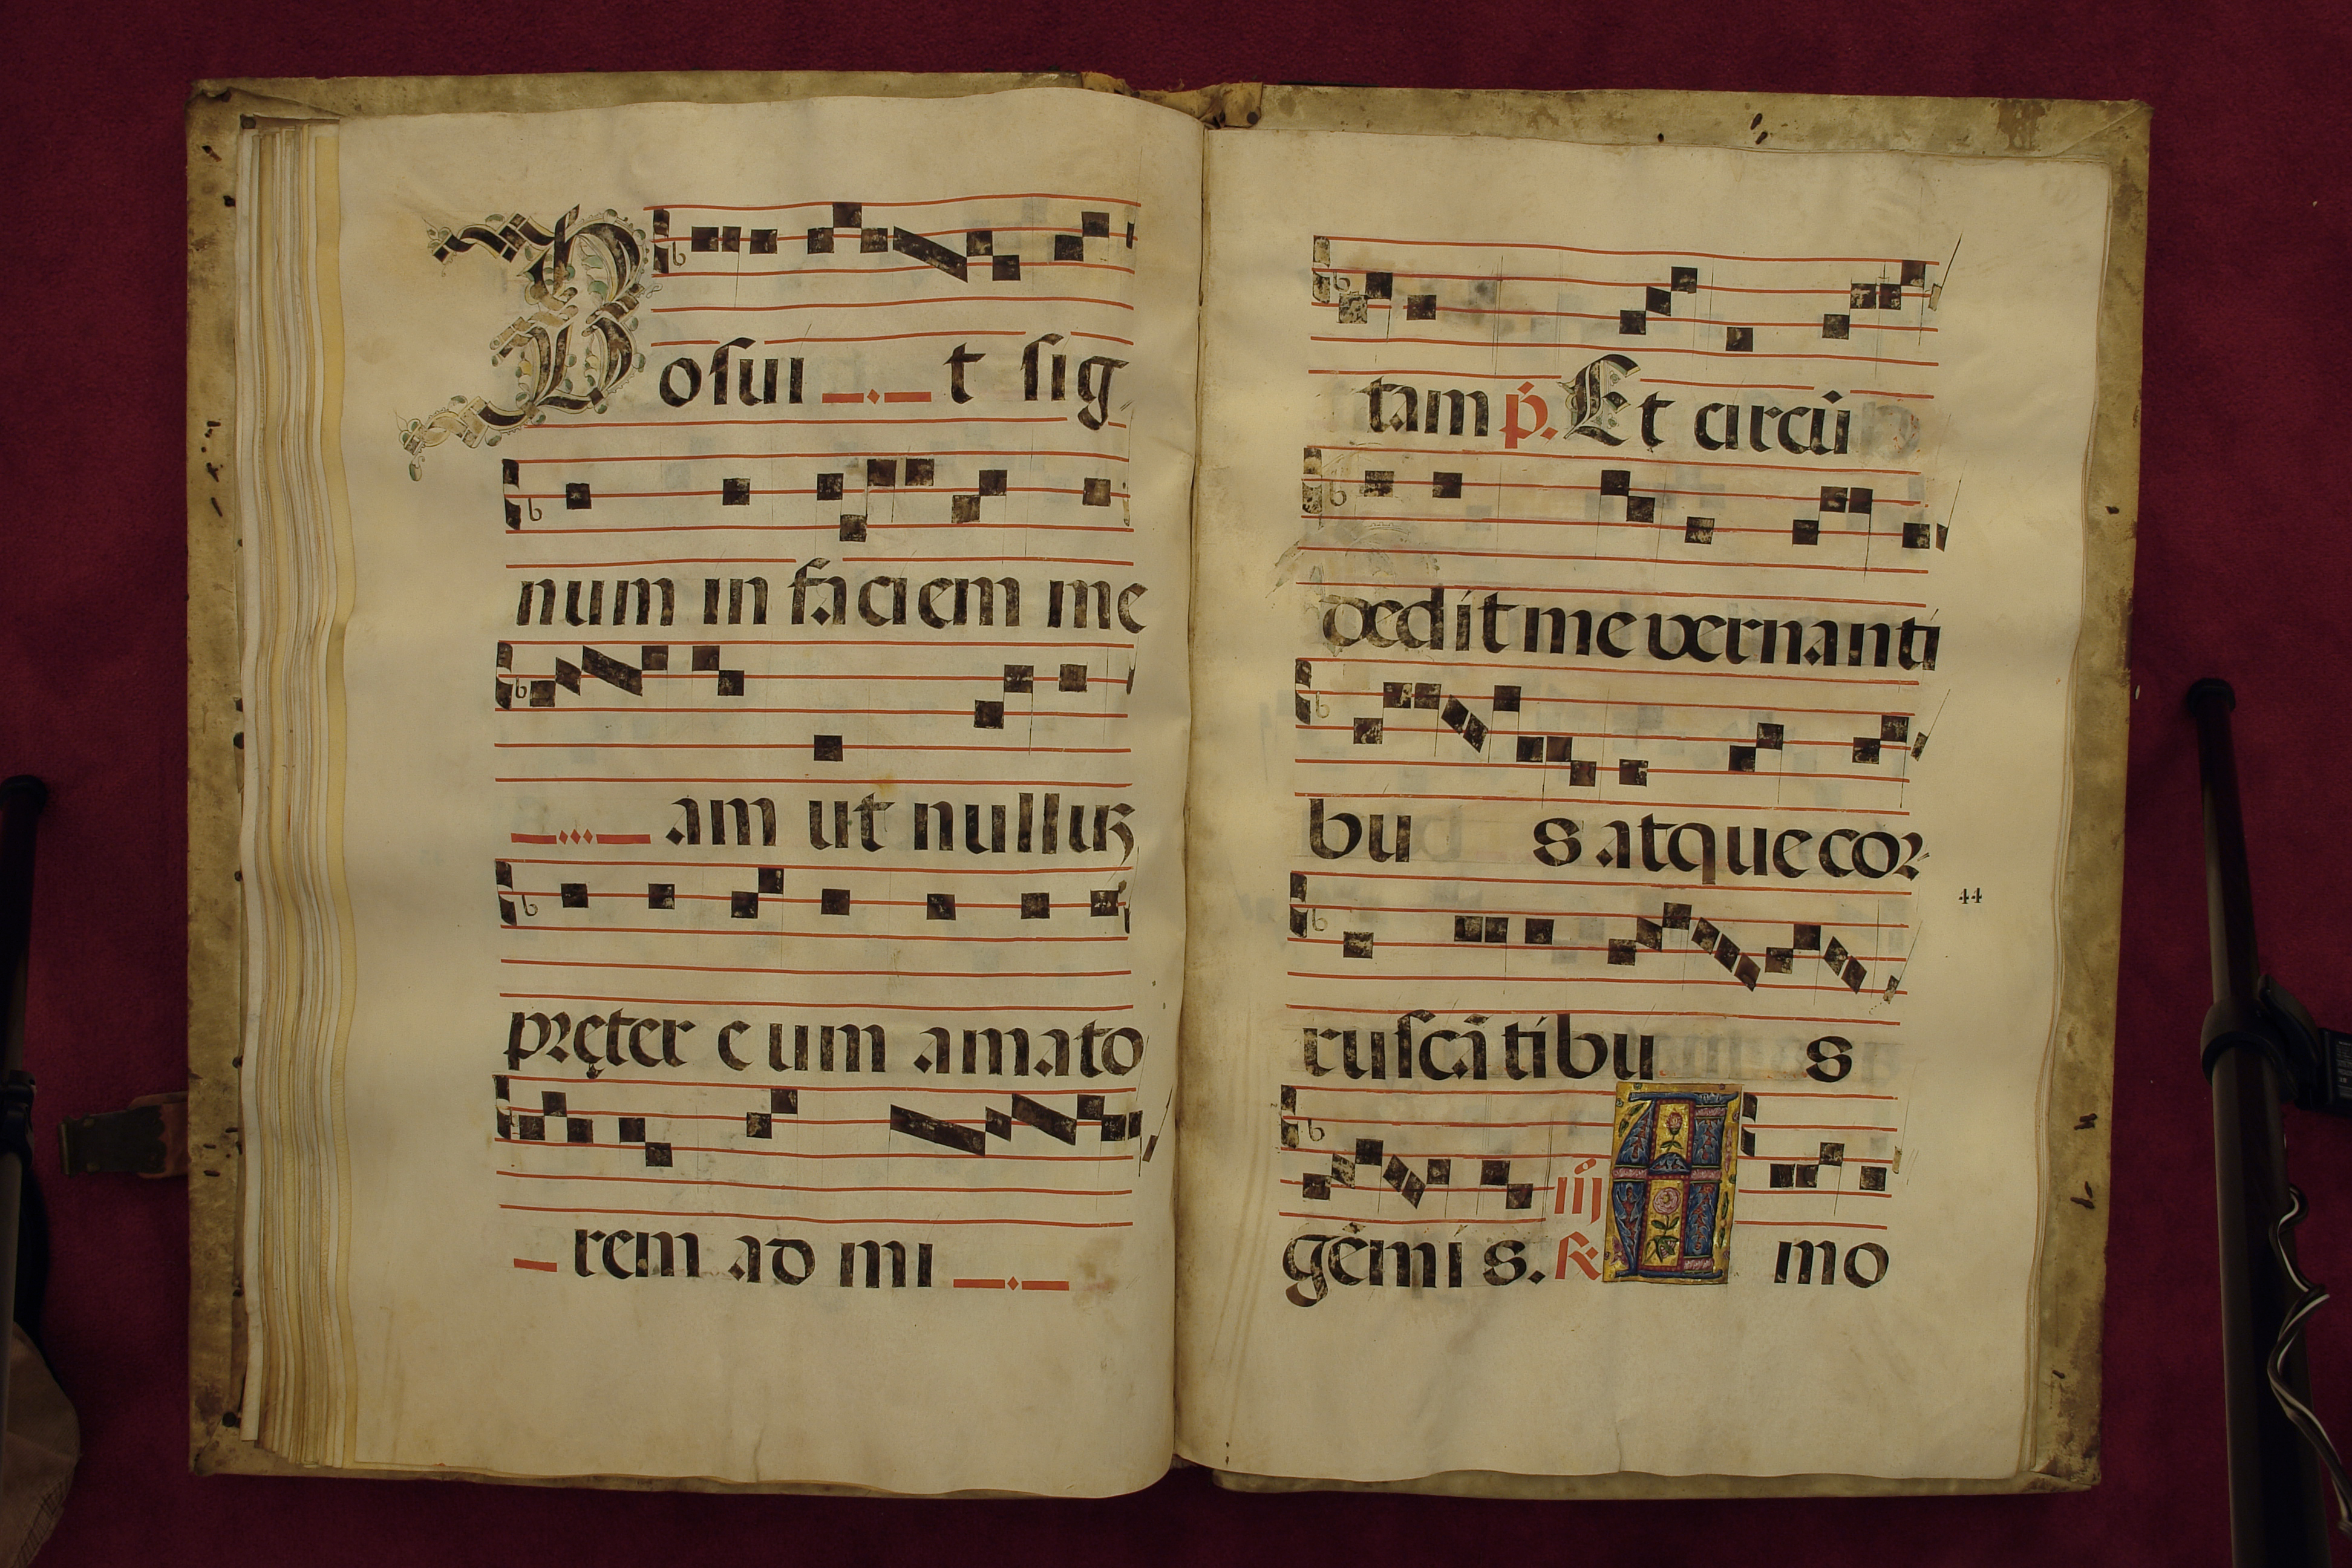 Posui t sig
num in faciem me
am ut nullus
pręter eum amato
rem admi
tam p̃. Et circũ
dedit me vernanti
bu s atque cor
ruscãtibu s
gẽmi s. iij ℟ A mo
44